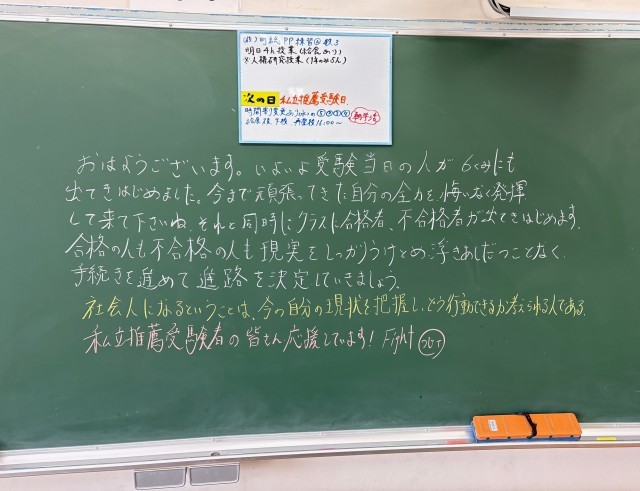 明日4h授業(給食あり)
※人権研究授業(1年のみ5h)
次の日 私立推薦受験日
時間割り変更あり
給食後下校 再登校16:00〜
おはようございます。いよいよ受験当日の人が6くみにも
出てきはじめました。今まで頑張ってきた自分の全力を、悔いなく発揮
して来て下さいね。それと同時にクラスに合格者、不合格者が出てきはじめます。
合格の人も不合格の人も現実をしっかりうけとめ、浮きあしだつことなく、
手続きを進めて進路を決定していきましょう。
社会人になるということは、今の自分の現状を把握し、どう行動できるか考えられる人である。
私立推薦受験者の皆さん応援しています! Fight